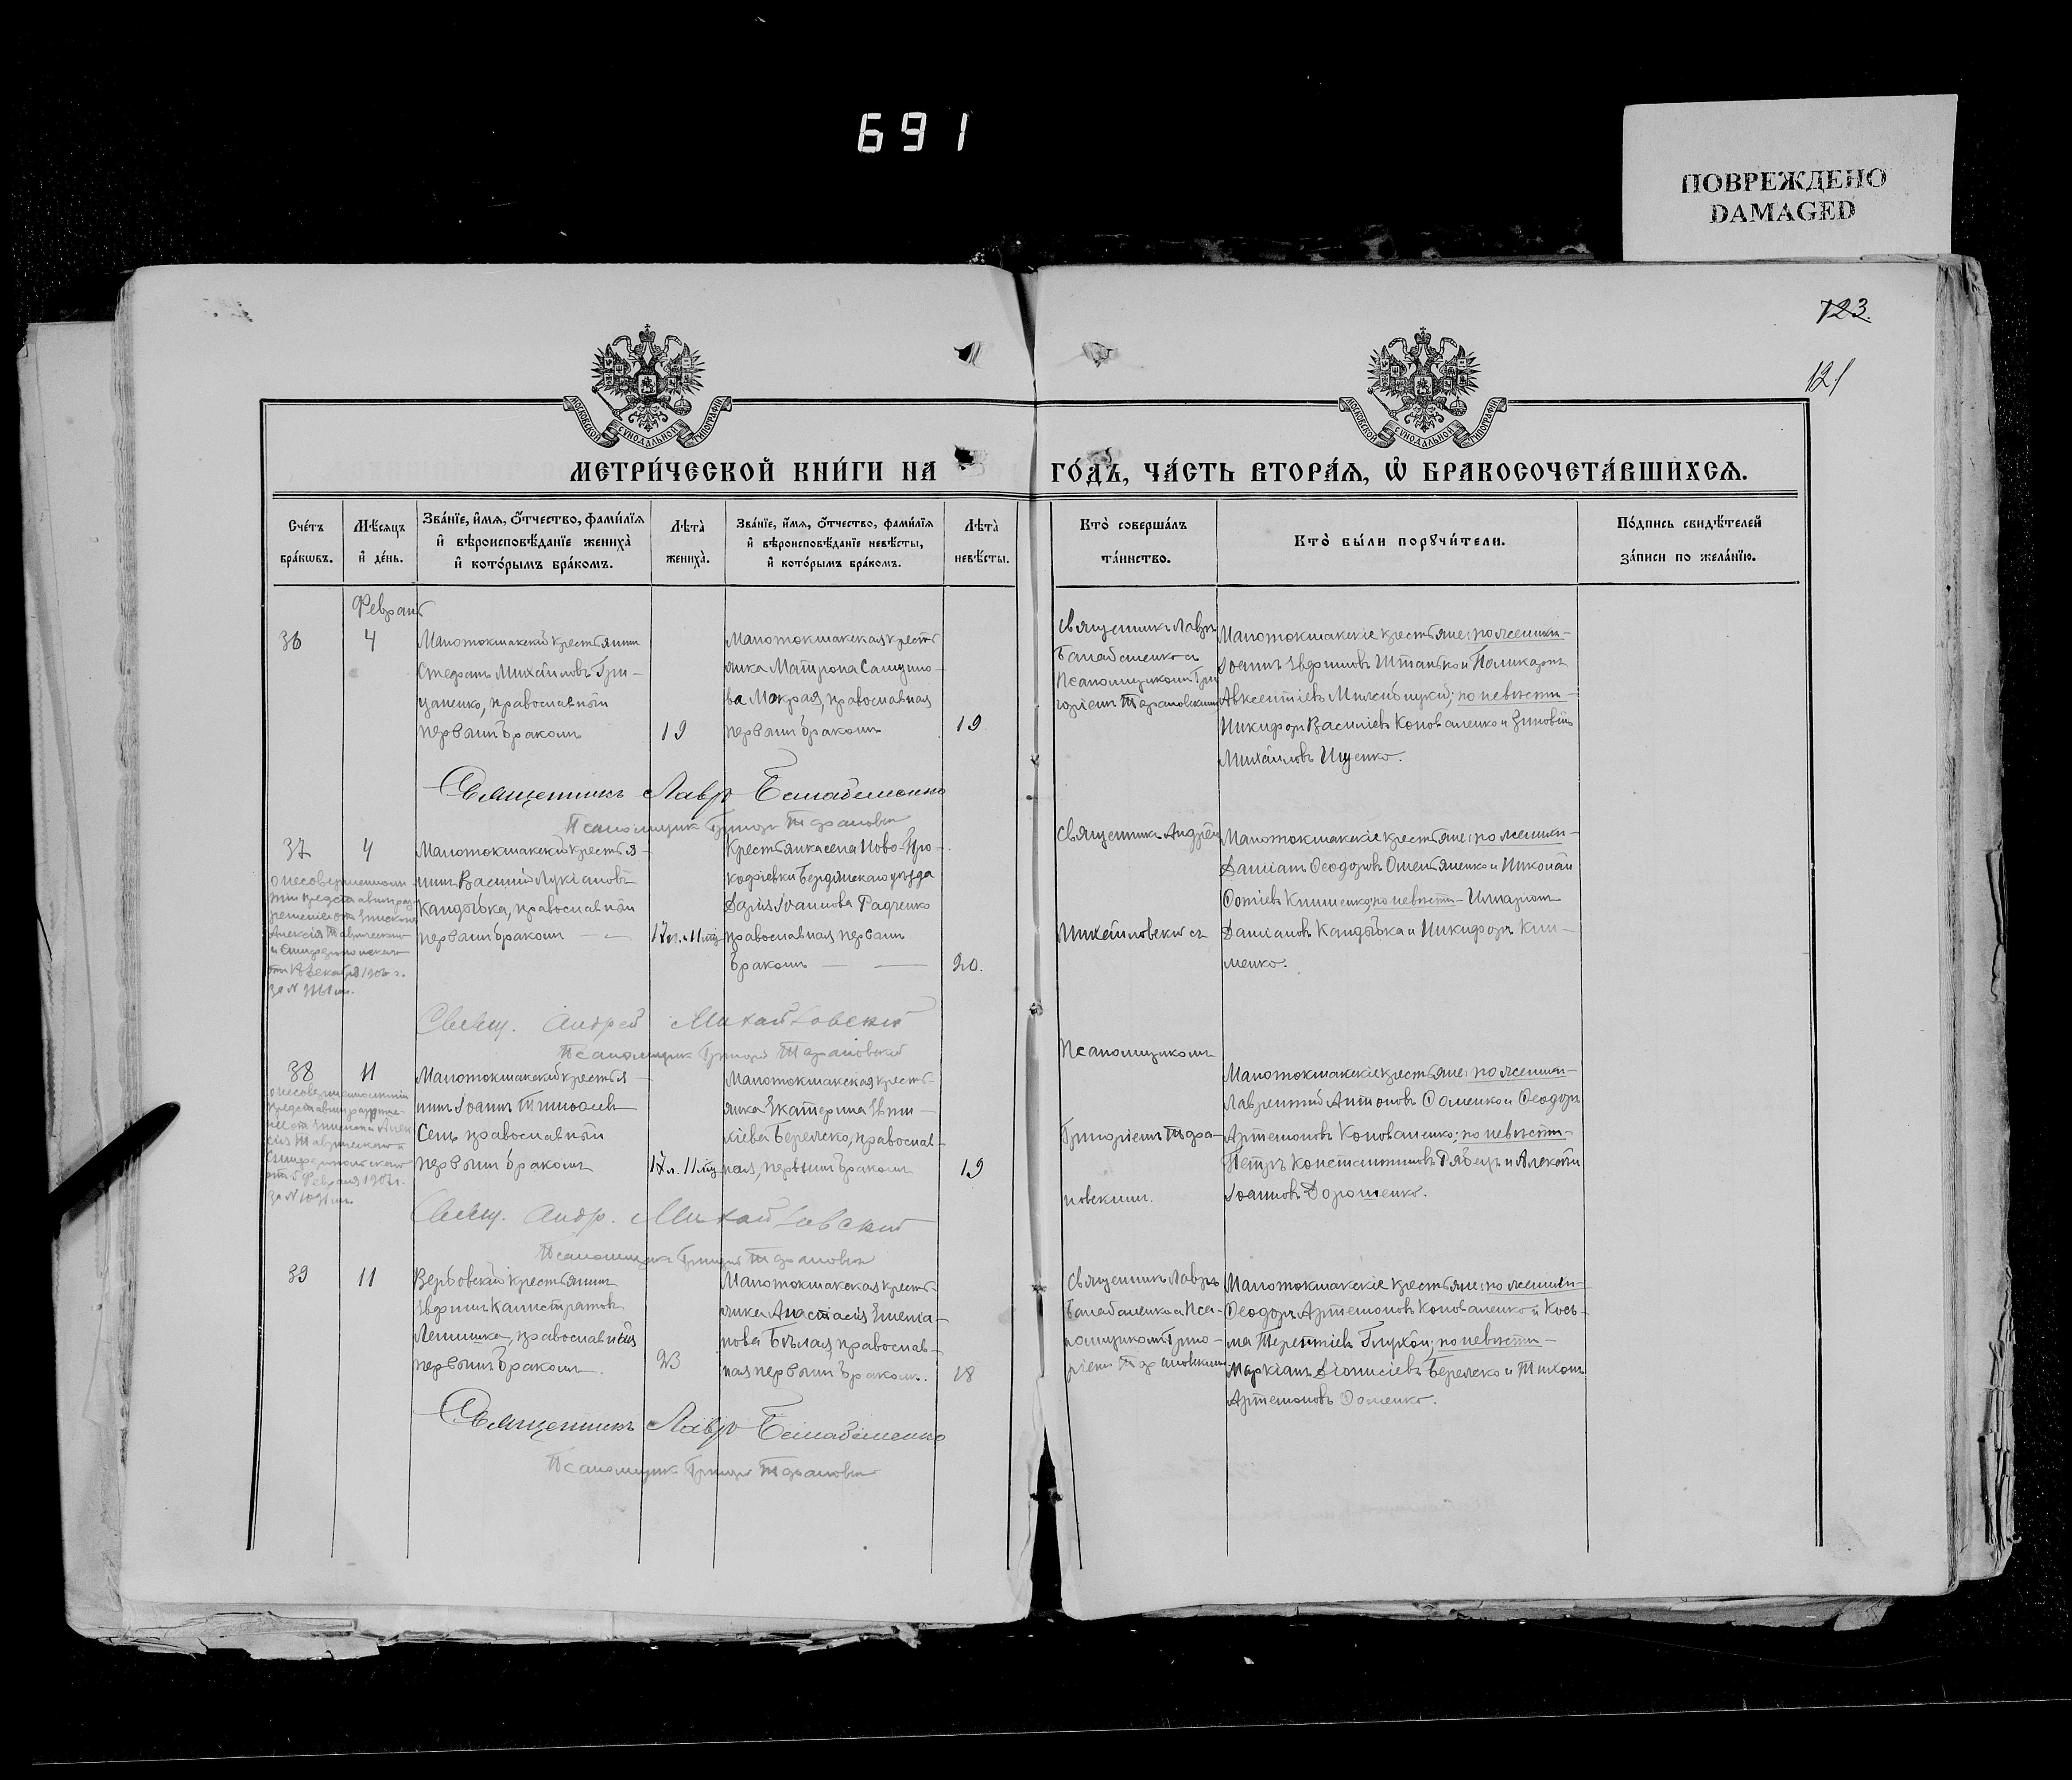 691
ПОВРЕЖДЕНО
DAMAGED
123.
121
МОСКОВСКОЙ СУНОДАЛЬНОЙ ТИПОГРАФІИ
МОСКОВСКОЙ СУНОДАЛЬНОЙ ТИПОГРАФІИ
МЕТРИ́ЧЕСКОЙ КНИ́ГИ НА
ГО́ДЪ, ЧА́СТЬ ВТОРА́Я, Ѡ҆ БРАКОСОЧЕТА́ВШИХСЯ.
Сче́тъ
бра́кωвъ.
Мѣ́сяцъ
и҆ де́нь.
Зва́нїе, и҆́мя, ѻ҆́тчество, фами́лїя
и҆ вѣроисповѣ́данїе жениха̀
и҆ кото́рымъ бра́комъ.
Лѣта̀
жениха̀.
Зва́нїе, и҆́мя, ѻ҆́тчество, фами́лїя
и҆ вѣроисповѣ́данїе невѣ́сты,
и҆ кото́рымъ бра́комъ.
Лѣта̀
невѣ́сты.
Кто̀ соверша́лъ
та́инство.
Кто̀ бы́ли порꙋчи́тели.
По́дпись свидѣ́телей
за́писи по жела́нїю.
Февраль
36
4
Малотокмакскій крестьянинъ
Стефанъ Михаиловъ Гри-
цаненко, православный
первымъ бракомъ
19
Малотокмакская кресть
янка Матрона Самуило-
ва Мокрая, православная
первымъ бракомъ
19
Священникъ Лавръ
Балабаненко съ
Псаломщикомъ Гри
горіемъ Тарановскимъ
Малотокмакскіе крестьяне: по женихѣ-
Іоаннъ Евфимовъ Штанько и Поликарпъ
Авксентіевъ; по невѣстѣ-
Никифоръ Василіевъ Коноваленко и Зиновій
Михаиловъ Ищенко.
Священникъ Лавръ Балабаненко
Псаломщикъ Григорій Тарановскій
37
4
о несовершеннолѣ-
тіи представлено раз
решеніе отъ Епископа
Алексія Таврическаго
и Симферопольскаго
отъ Декабря 1906 г.
за №
Малотокмакскій крестья-
нинъ Василій Лукіановъ
Кандыбка, православный
первымъ бракомъ —
17 л. 11 мц
Крестьянка села Ново-Про-
кофіевки Бердянскаго уѣзда
Дарія Іоаннова Радченко
православная первымъ
бракомъ —
20.
Священникъ Андрей
Михайловскій съ
Малотокмакскіе крестьяне: по женихѣ-
Даміанъ Ѳеодоровъ Омельяненко и Николай
Фотіевъ Клименко; по невѣстѣ- Иларіонъ
Даміановъ Кандыбка и Никифоръ Кли-
менко.
Свящ. Андрей Михайловскій
Псаломщикъ Григорій Тарановскій
38
11
о несовершеннолѣтіи
представлено разрѣше-
ніе отъ Епископа Алек-
сія Таврическаго и
Симферопольскаго
отъ 5 Февраля 1907 г.
за №
Малотокмакскій крестья-
нинъ Іоаннъ Тимофеевъ
Сень православный
первымъ бракомъ
17 л. 11 мц
Малотокмакская кресть-
янка Екатерина
Берелеко, православ-
ная, первымъ бракомъ
19
Псаломщикомъ
Григоріемъ Тара-
новскимъ.
Малотокмакскіе крестьяне: по женихѣ-
Лаврентій Антоновъ Фоменко и Ѳеодоръ
Артемоновъ Коноваленко; по невѣстѣ-
Петръ Константиновъ Рябецъ и Алексій
Іоанновъ Дорошенко.
Свящ. Андр. Михайловскій
Псаломщикъ Григорій Тарановскій
39
11
Вербовскій крестьянинъ
Евфимъ Калистратовъ
Лепишка, православный
первымъ бракомъ
23
Малотокмакская кресть-
янка Анастасія Емелiа-
нова Бѣлая православ-
ная первымъ бракомъ.
18
Священникъ Лавръ
Балабаненко и Пса-
ломщикомъ Григо-
ріемъ Тарановскимъ
Малотокмакскіе крестьяне: по женихѣ-
Ѳеодоръ Артемоновъ Коноваленко и Кось-
ма Терентіевъ Глухой; по невѣстѣ-
Маркіанъ Діонисіевъ Берелеко и Тихонъ
Артемоновъ Фоменко.
Священникъ Лавръ Балабаненко
Псаломщикъ Григорій Тарановскій